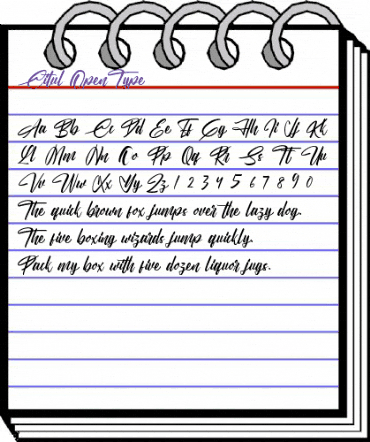 Citul Open Type
Aa Bb Cc Dd Ee Ff Gg Hh Ii Jj Kk
Ll Mm Nn Oo Pp Qq Rr Ss Tt Uu
Vv Ww Xx Yy Zz 1 2 3 4 5 6 7 8 9 0
The quick brown fox jumps over the lazy dog.
The five boxing wizards jump quickly.
Pack my box with five dozen liquor jugs.